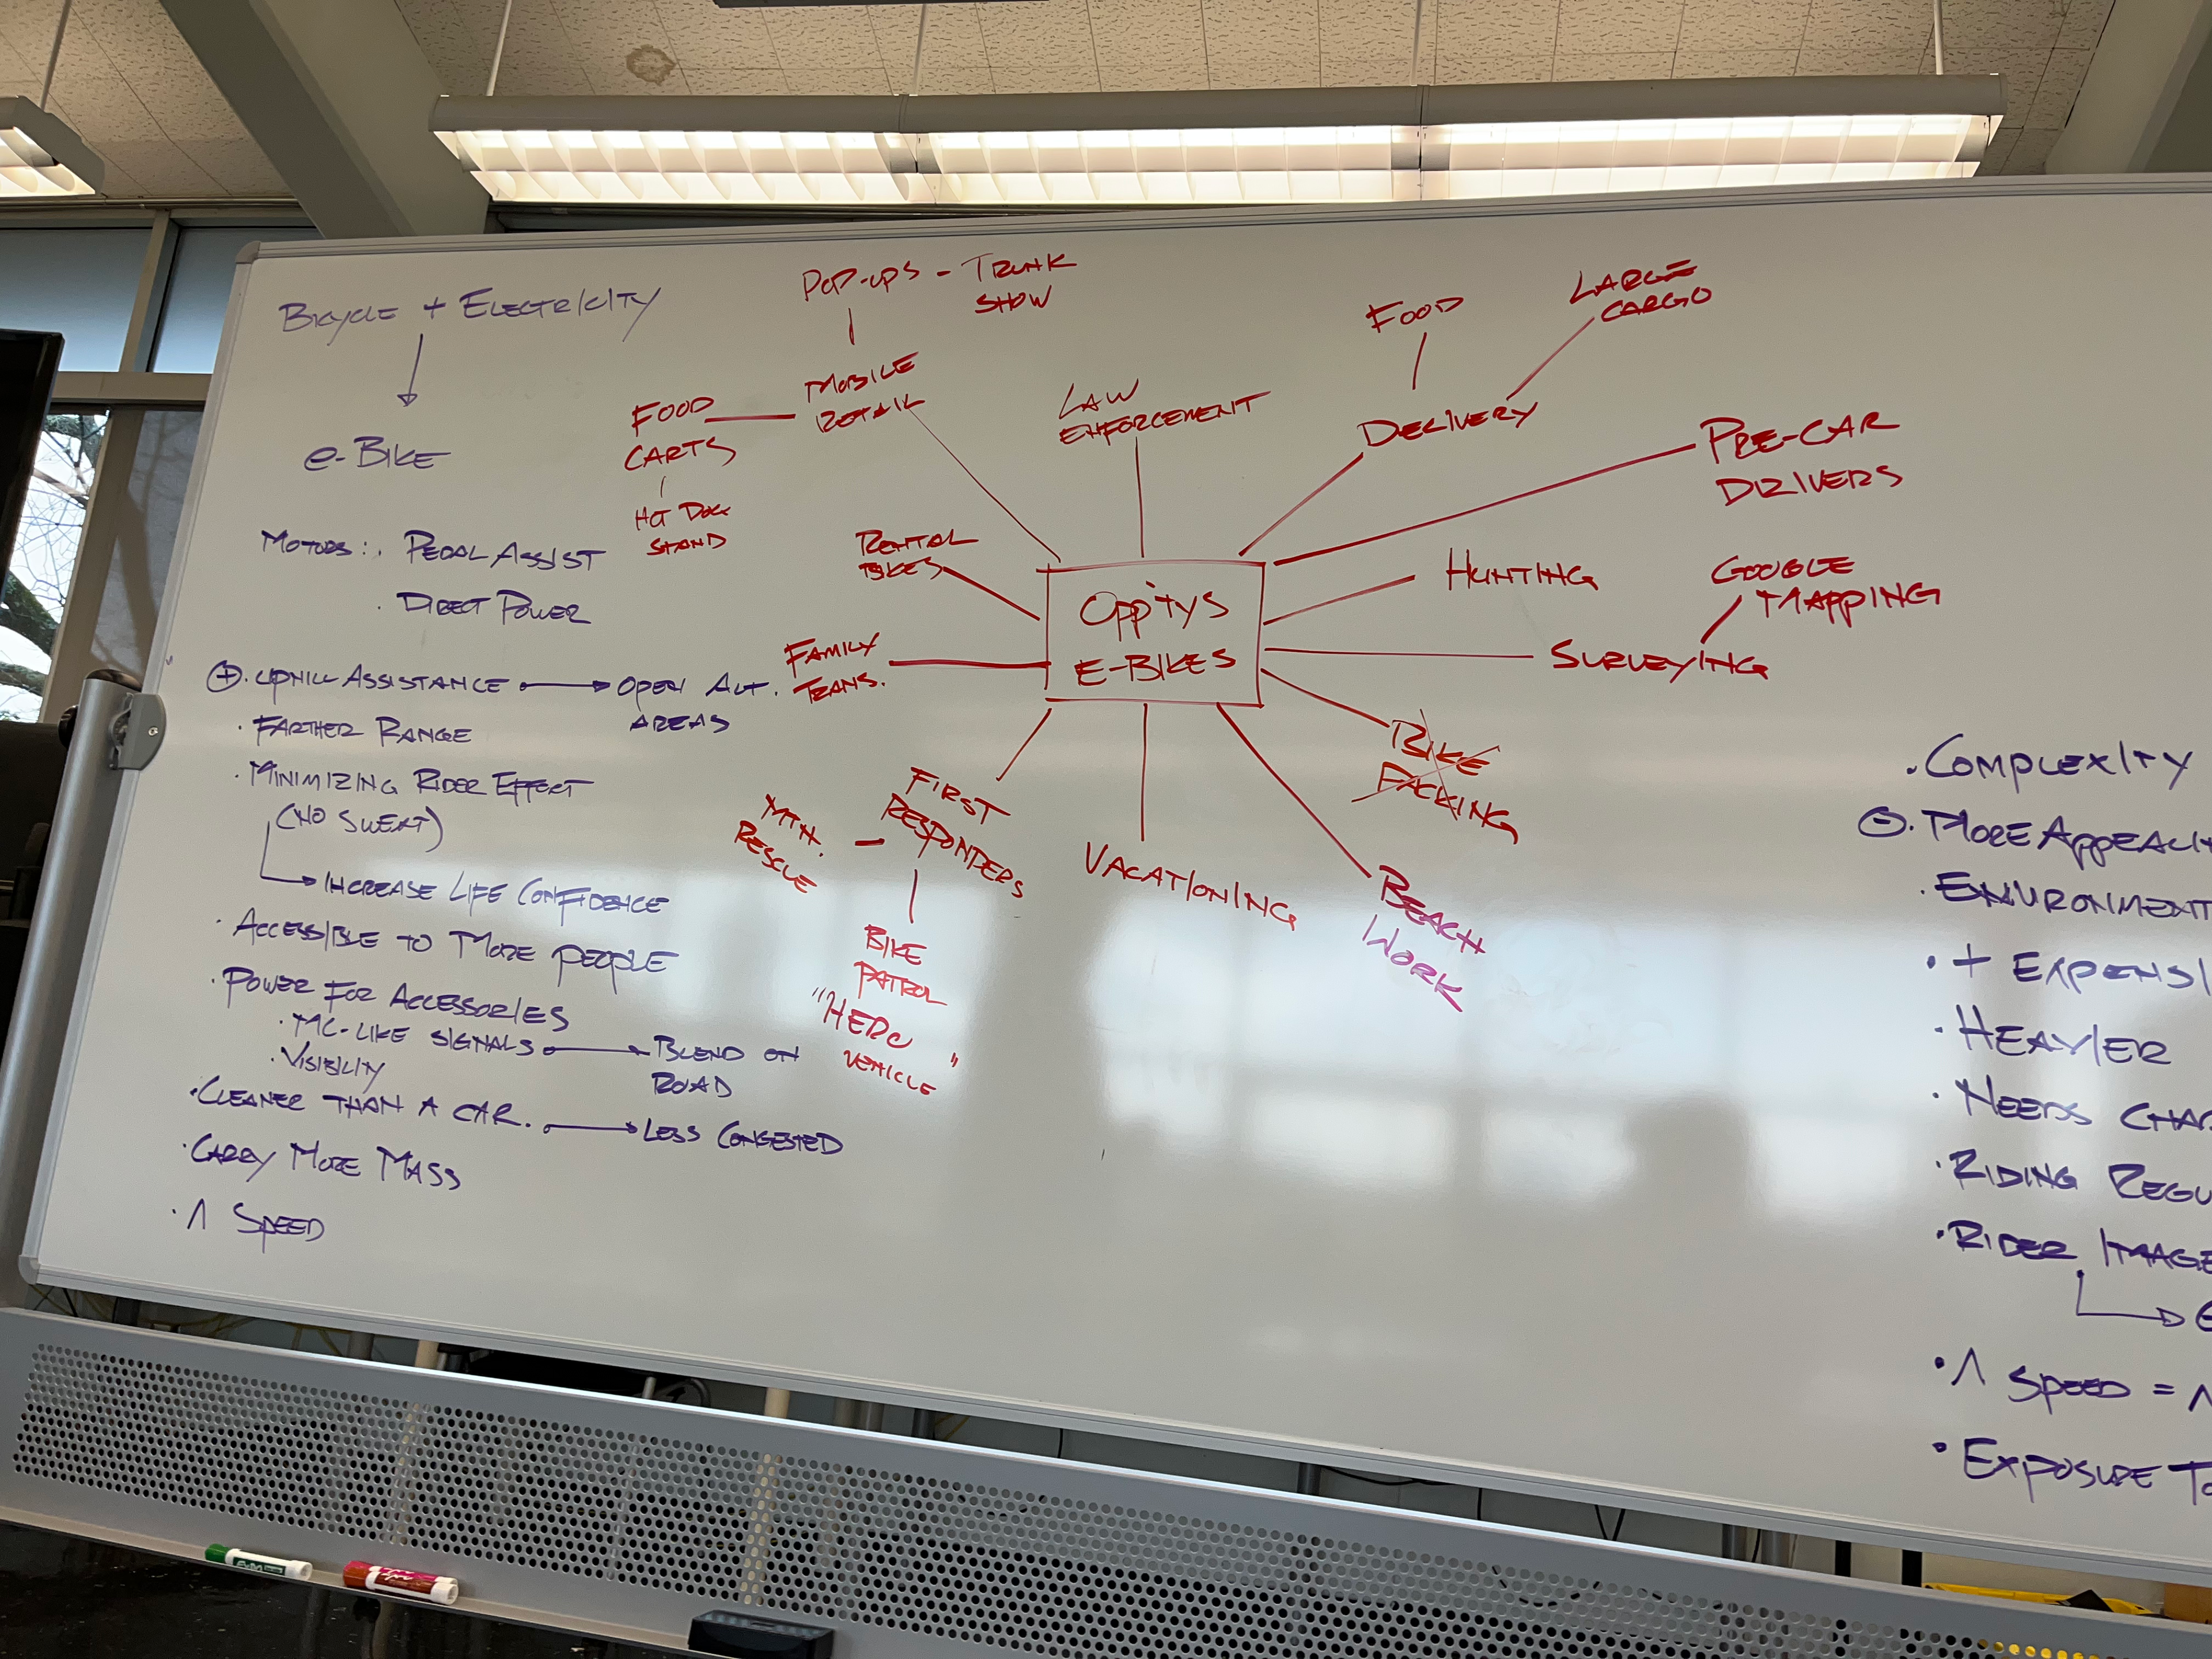 BICYCLE + ELECTRICITY
e-BIKE
MOTORS: . PEDAL ASSIST
. DIRECT POWER
+ . UPHILL ASSISTANCE → OPEN ALT.
AREAS
· FARTHER RANGE
· MINIMIZING RIDER EFFECT
(NO SWEAT)
→ INCREASE LIFE CONFIDENCE
· ACCESSIBLE TO MORE PEOPLE
· POWER FOR ACCESSORIES
· MC-LIKE SIGNALS → BLEND ON
ROAD
· VISIBILITY
· CLEANER THAN A CAR. → LESS CONGESTED
· CARRY MORE MASS
· Λ SPEED
POP-UPS - TRUNK
SHOW
MOBILE
RETAIL
FOOD
CARTS
HOT DOG
STAND
LAW
ENFORCEMENT
FOOD
LARGE
CARGO
DELIVERY
PRE-CAR
DRIVERS
RENTAL
BIKES
OPPTYS
E-BIKES
HUNTING
GOOGLE
MAPPING
SURVEYING
FAMILY
TRANS.
BIKE
PACKING
FIRST
RESPONDERS
MTN.
RESCUE
BIKE
PATROL
"HERO
VEHICLE"
VACATIONING
BEACH
WORK
· COMPLEXITY
− . MORE
· ENVIRONMENT
· +
· HEAVIER
· NEEDS
· RIDING
· RIDER IMAGE
· Λ SPEED = Λ
· EXPOSURE
EXPO